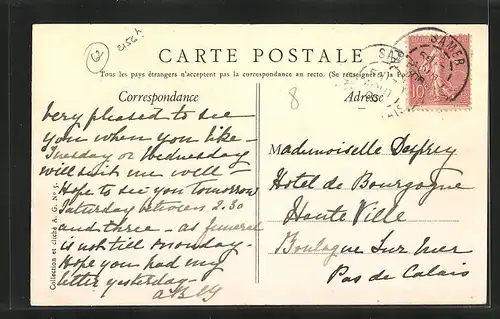 62
25624
CARTE POSTALE
Tous les pays étrangers n'acceptent pas la correspondance au recto. (Se renseigner à la Poste)
Correspondance
8
Adresse
SAMER
10
very pleased to see
you when you like -
Tuesday or Wednesday
will suit me well -
Hope to see you tomorrow
Saturday between 2.30
and three - as funeral
is not till monday -
Hope you had my
letter yesterday -
Mademoiselle
Hotel de Bourgogne
Haute Ville
Boulogne Sur Mer
Pas de Calais
Collection et cliché A. G. No 1.